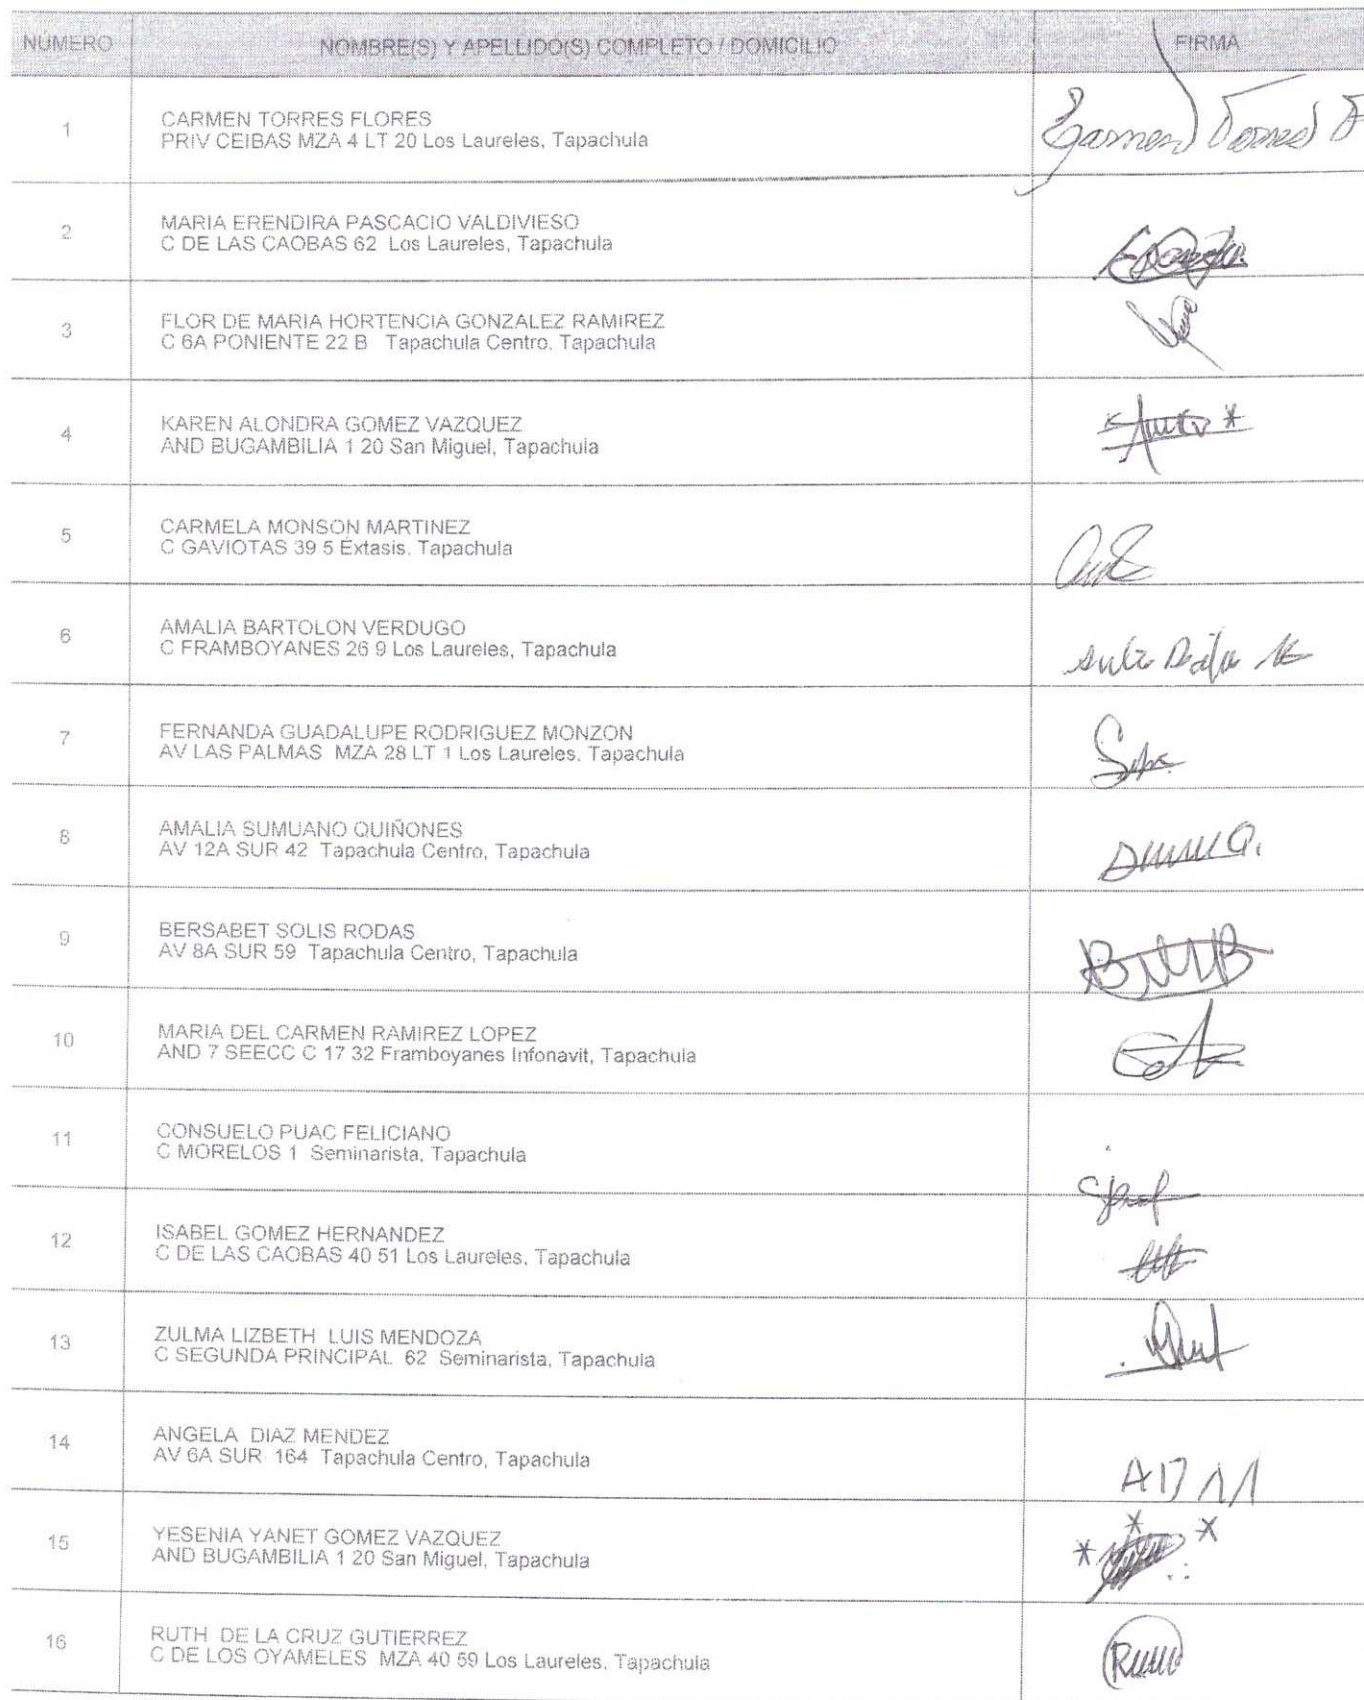 NÚMERO NOMBRE(S) Y APELLIDO(S) COMPLETO / DOMICILIO FIRMA
1 CARMEN TORRES FLORES Carmen Torres F
PRIV CEIBAS MZA 4 LT 20 Los Laureles, Tapachula
2 MARIA ERENDIRA PASCACIO VALDIVIESO
C DE LAS CAOBAS 62 Los Laureles, Tapachula
3 FLOR DE MARIA HORTENCIA GONZALEZ RAMIREZ
C 6A PONIENTE 22 B Tapachula Centro, Tapachula
4 KAREN ALONDRA GOMEZ VAZQUEZ
AND BUGAMBILIA 1 20 San Miguel, Tapachula
5 CARMELA MONSON MARTINEZ
C GAVIOTAS 39 5 Éxtasis, Tapachula
6 AMALIA BARTOLON VERDUGO
C FRAMBOYANES 26 9 Los Laureles, Tapachula
7 FERNANDA GUADALUPE RODRIGUEZ MONZON
AV LAS PALMAS MZA 28 LT 1 Los Laureles, Tapachula
8 AMALIA SUMUANO QUIÑONES
AV 12A SUR 42 Tapachula Centro, Tapachula
9 BERSABET SOLIS RODAS
AV 8A SUR 59 Tapachula Centro, Tapachula
10 MARIA DEL CARMEN RAMIREZ LOPEZ
AND 7 SEECC C 17 32 Framboyanes Infonavit, Tapachula
11 CONSUELO PUAC FELICIANO
C MORELOS 1 Seminarista, Tapachula
12 ISABEL GOMEZ HERNANDEZ
C DE LAS CAOBAS 40 51 Los Laureles, Tapachula
13 ZULMA LIZBETH LUIS MENDOZA
C SEGUNDA PRINCIPAL 62 Seminarista, Tapachula
14 ANGELA DIAZ MENDEZ
AV 6A SUR 164 Tapachula Centro, Tapachula
ADM
15 YESENIA YANET GOMEZ VAZQUEZ
AND BUGAMBILIA 1 20 San Miguel, Tapachula
16 RUTH DE LA CRUZ GUTIERREZ
C DE LOS OYAMELES MZA 40 59 Los Laureles, Tapachula